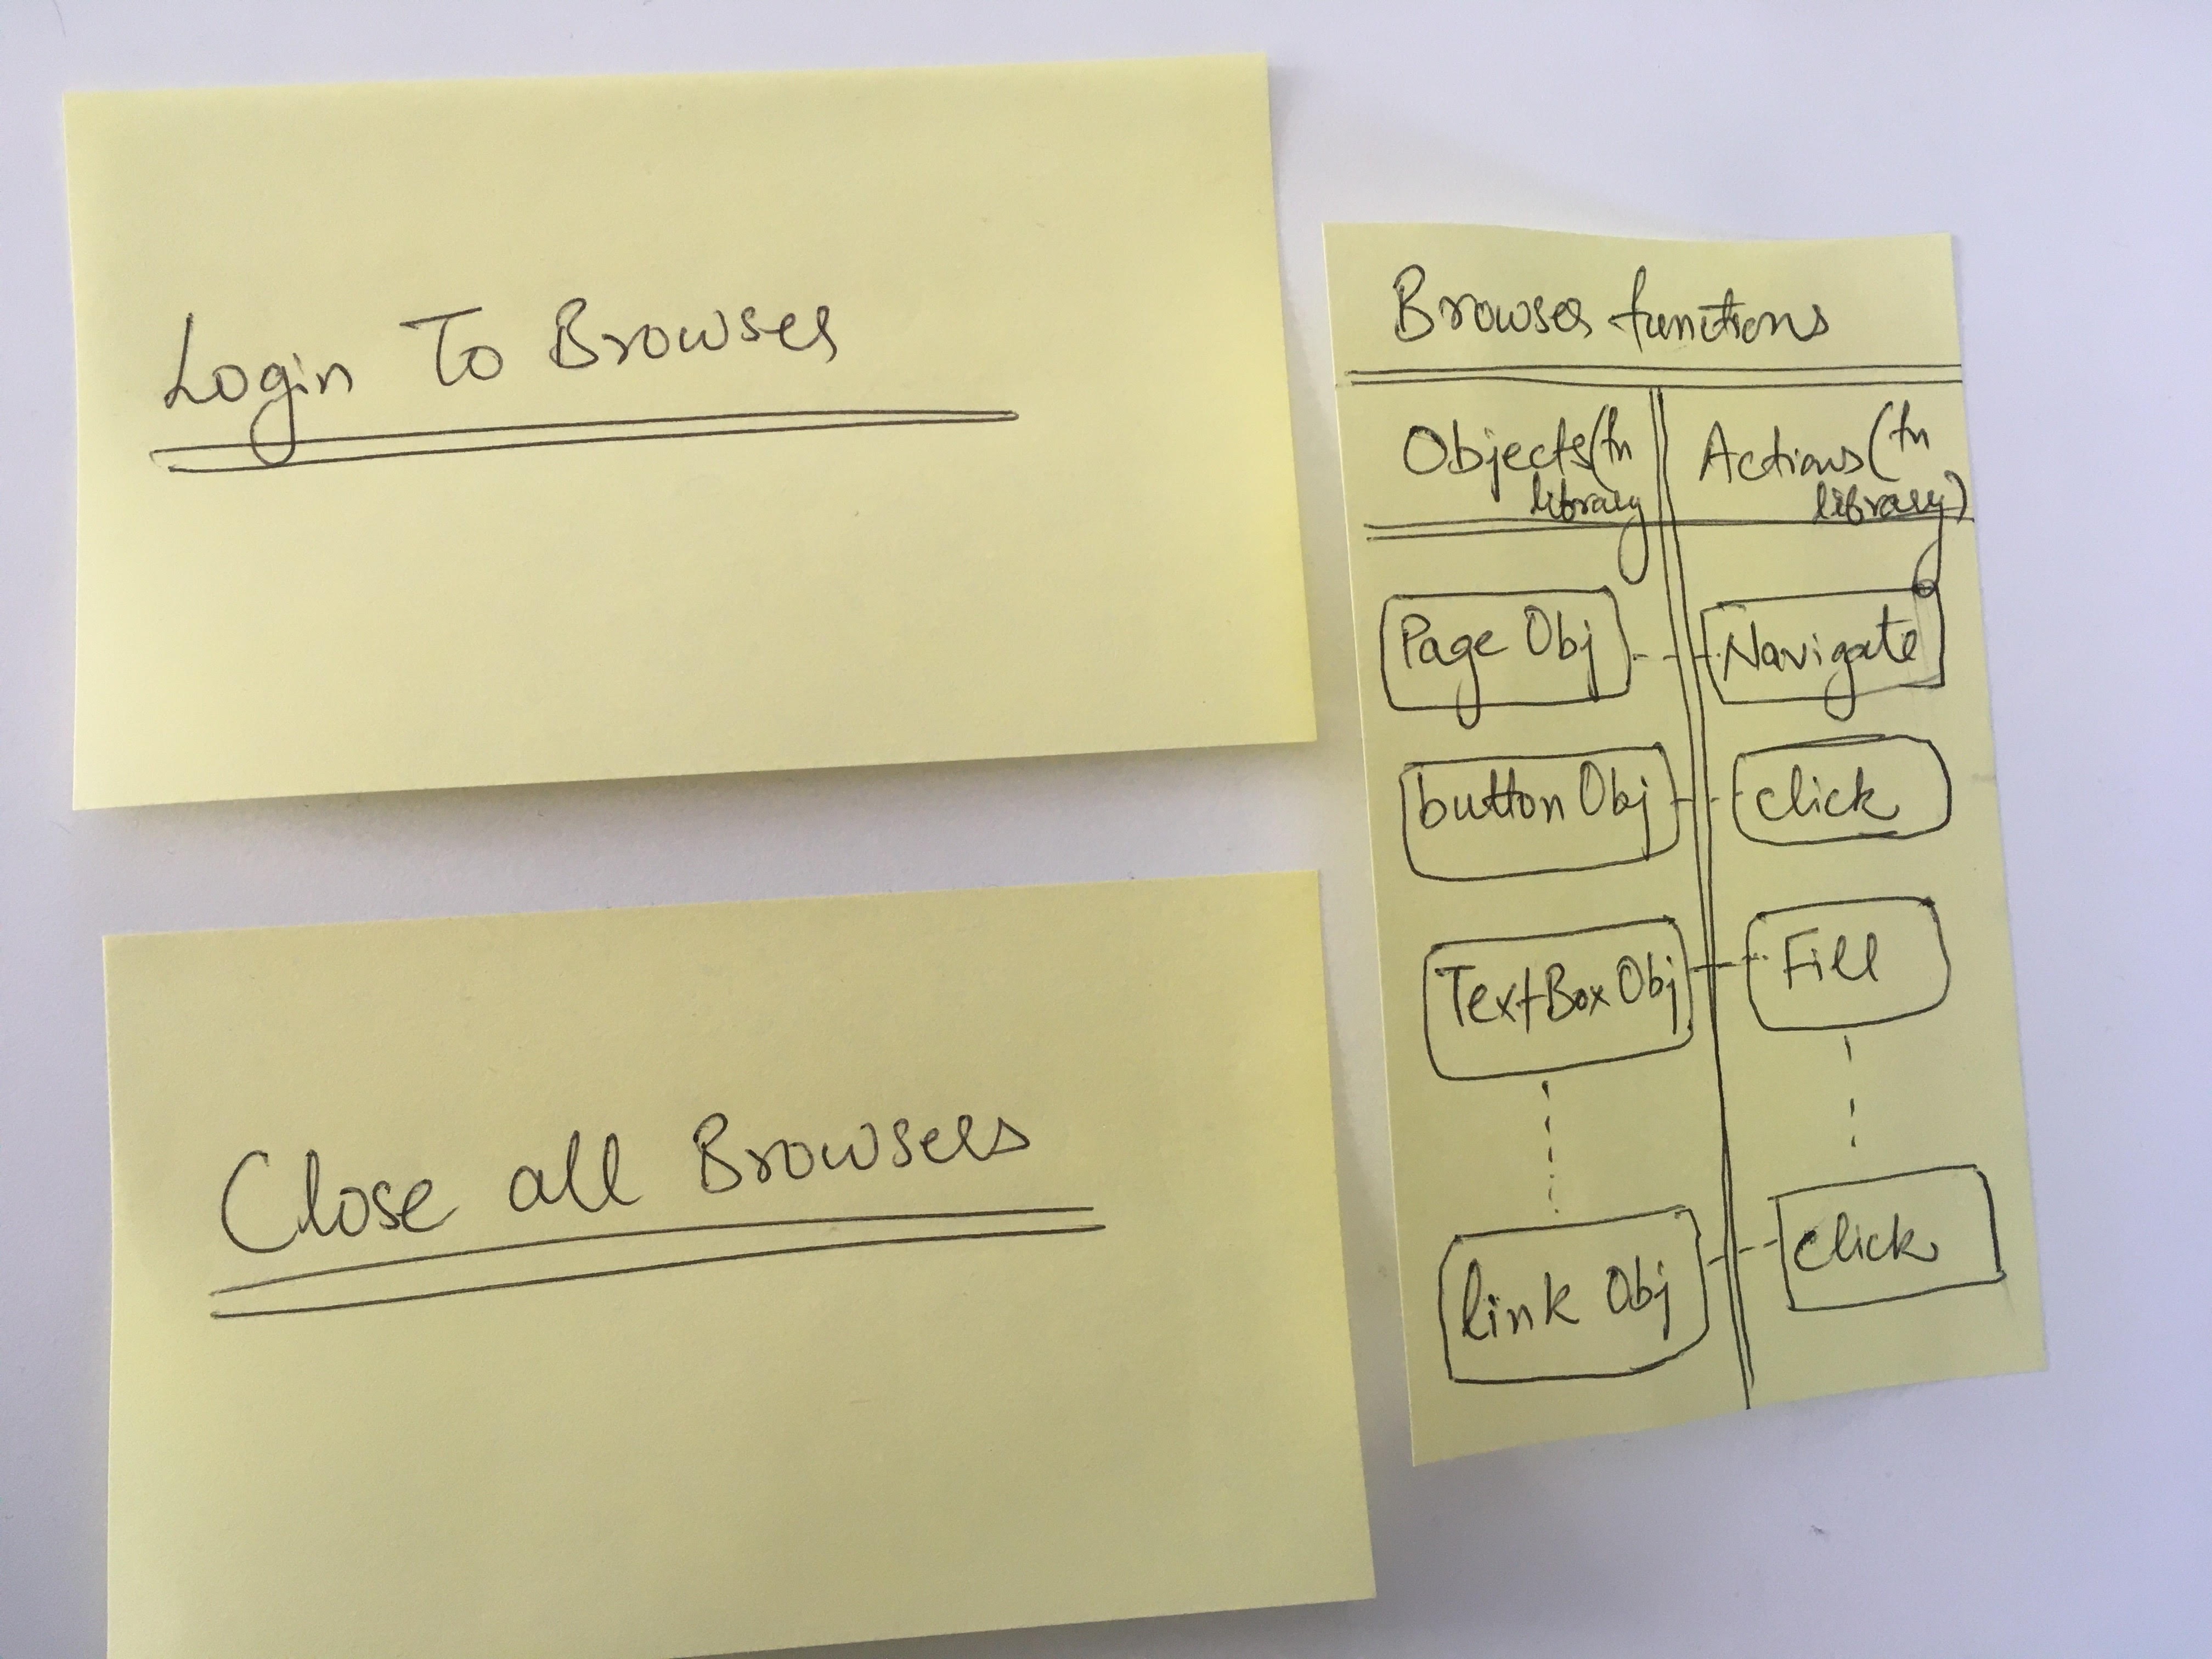 Login To Browser
Close all Browsers
Browser functions
Objects(In library
Actions(In library)
Page Obj
Navigate
button Obj
click
TextBox Obj
Fill
link Obj
click